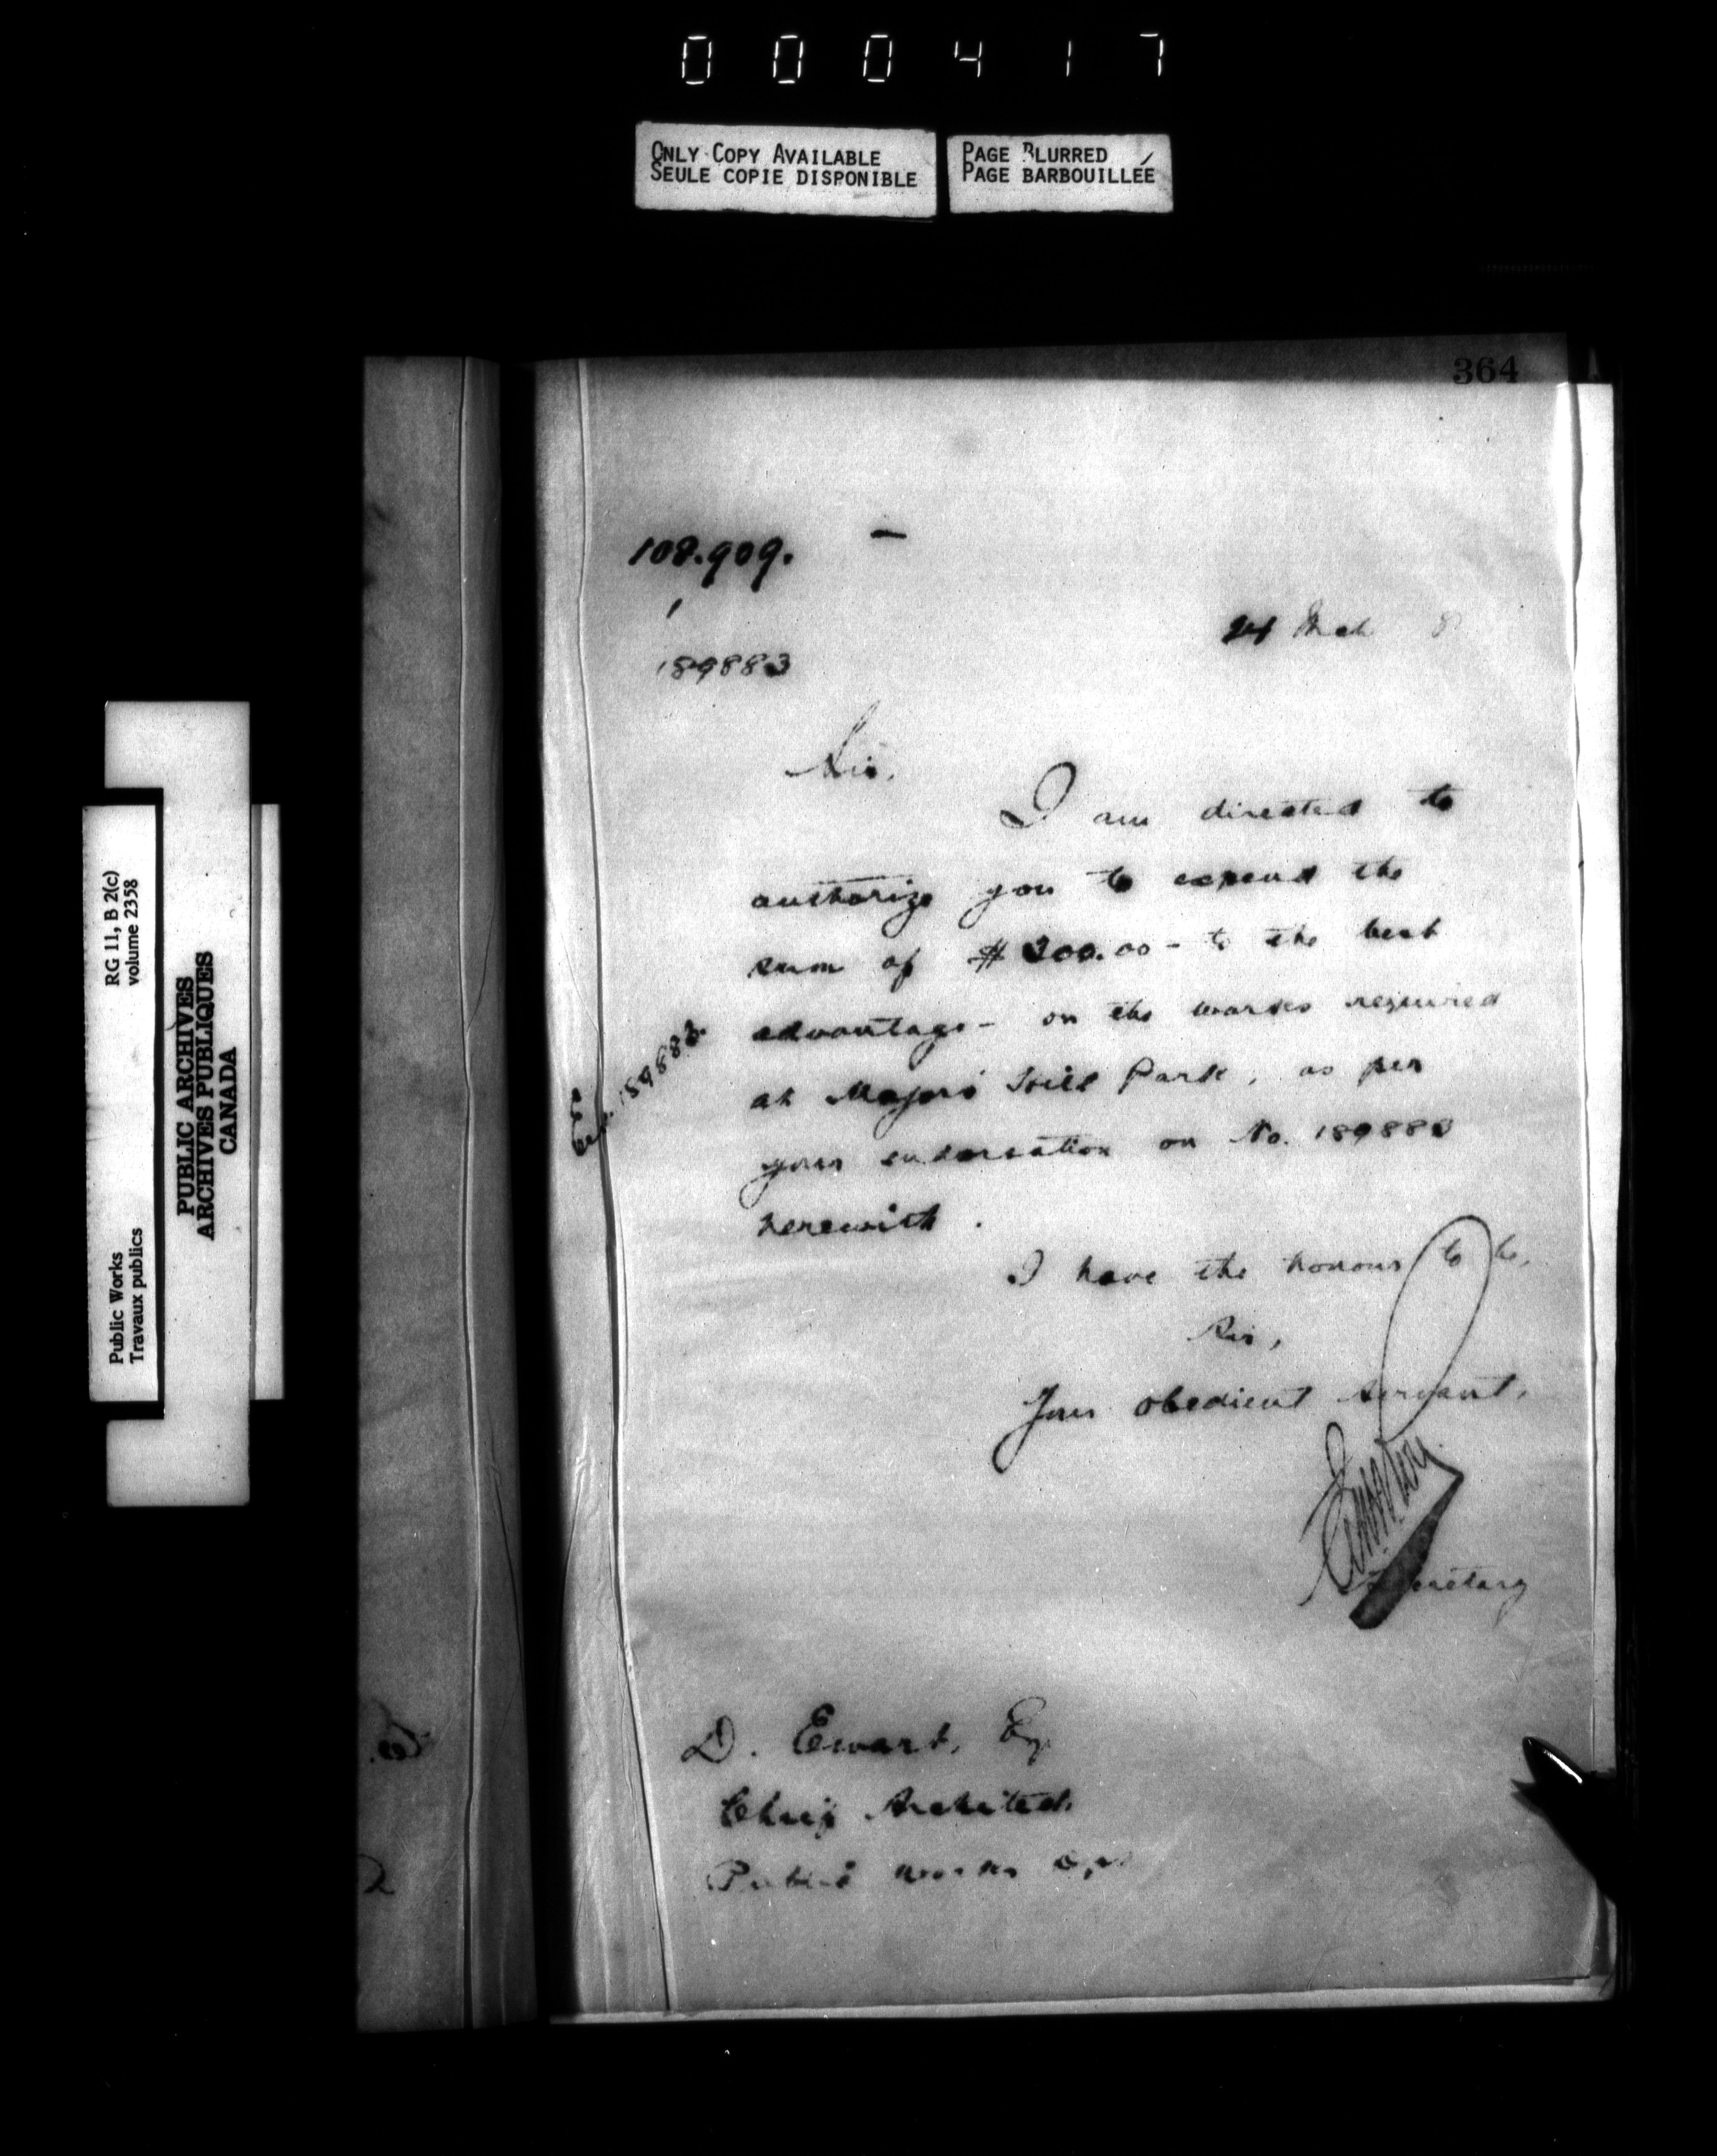 000417
ONLY COPY AVAILABLE
SEULE COPIE DISPONIBLE
PAGE BLURRED
PAGE BARBOUILLÉE
RG 11, B 2(c)
volume 2358
Public Works
Travaux publics
PUBLIC ARCHIVES
ARCHIVES PUBLIQUES
CANADA
364
108.909.
1
189883
24 Mch
Sir,
I am directed to
authorize you to expend the
sum of $ 300.00 - to the best
advantage - on the works required
at Majors Hill Park, as per
your endorsation on No. 189883
herewith.
189883.
I have the honour to be,
Sir,
Your obedient servant,
Secretary
D. Ewart, Esq.
Chief Architect
Public Works